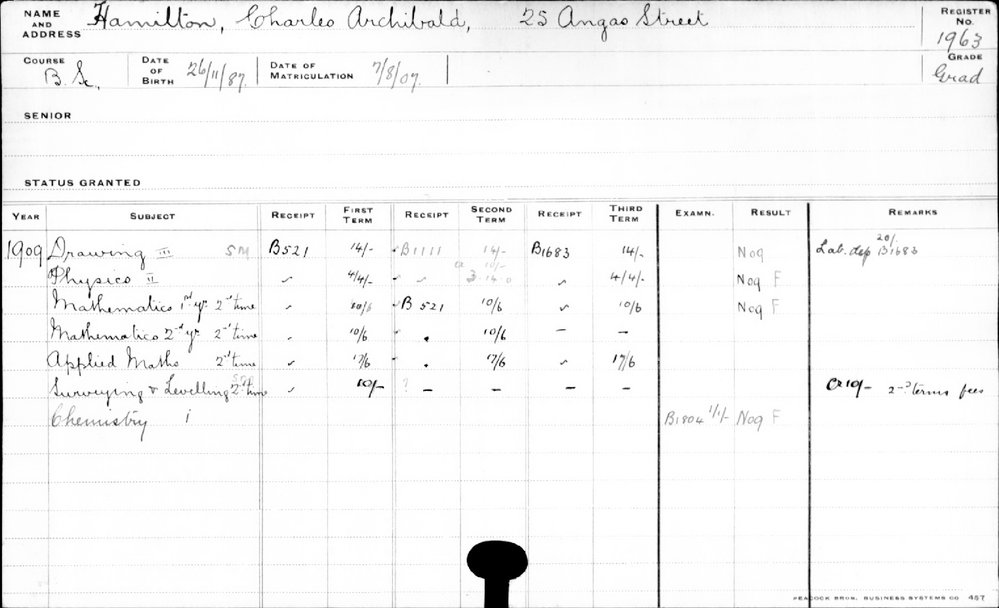 NAME AND ADDRESS Hamilton, Charles Archibald, 25 Angas Street REGISTER No. 1963
COURSE B. Sc. DATE OF BIRTH 26/11/87. DATE OF MATRICULATION 7/8/07. GRADE Grad
SENIOR
STATUS GRANTED
YEAR SUBJECT RECEIPT FIRST TERM RECEIPT SECOND TERM RECEIPT THIRD TERM EXAMN. RESULT REMARKS
1909 Drawing III SM B521 14/- B1111 14/- B1683 14/- Noq Lab. dep 20/- B1683
Physics II ✓ 4/4/- ✓ ✓ 4/4/- Noq F
Mathematics 1st yr. 2nd time ✓ 10/6 B521 10/6 ✓ 10/6 Noq F
Mathematics 2nd yr 2nd time ✓ 10/6 . 10/6 – –
Applied Maths 2nd time ✓ 17/6 . 17/6 ✓ 17/6
Surveying & Levelling 2nd time ✓ 10/- ? – – – – Cr 10/- 2nd terms fees
Chemistry i B1804 1/1/- Noq F
PEACOCK BROS. BUSINESS SYSTEMS CO 457